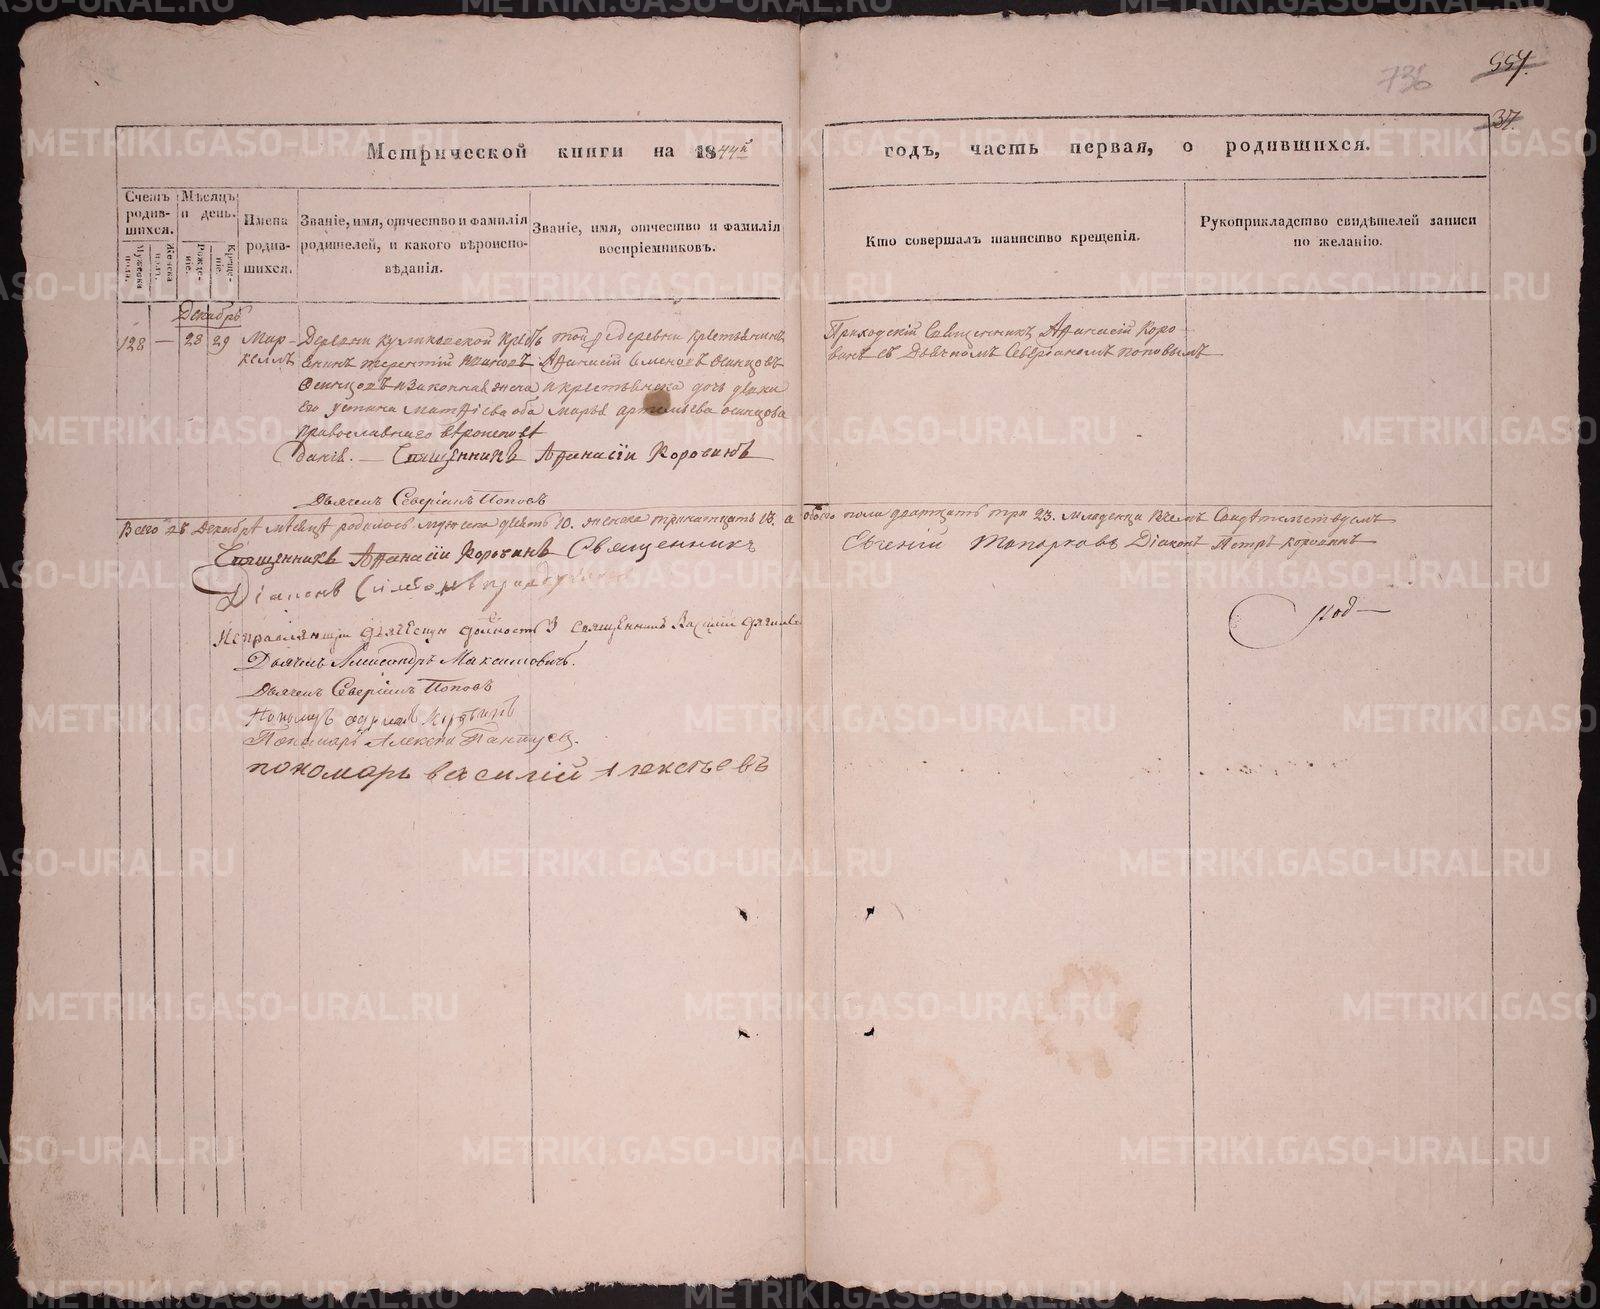 738
557.
37.
Метрической книги на 1844й
годъ, часть первая, о родившихся.
Счетъ родив-шихся.
Мужеска пола.
Женска пола.
Мѣсяцъ и день.
Рожде-ніе.
Креще-ніе.
Имена родив-шихся.
Званіе, имя, отчество и фамилія родителей, и какого вѣроиспо-вѣданія.
Званіе, имя, отчество и фамилія воспріемниковъ.
Кто совершалъ таинство крещенія.
Рукоприкладство свидѣтелей записи по желанію.
Декабрь
128 — 28 29
Мар-
келлъ
Деревни Куликовской Крес
янинъ Терентій Ивановъ
Осинцовъ и законная жена
его Устина Матѳіева оба
православнаго вѣроиспові
данія. —
той деревни крестьянинъ
Аѳанасій Осинцовъ
и крестьянска дочь девка
Марья Артемьева Осинцова
Приходскій Священникъ Аѳанасій Коро-
винъ съ Дьячкомъ Северіаномъ Поповымъ
Священникъ Аѳанасій Коровинъ
Дьячекъ Северіанъ Поповъ
Всего въ Декабрѣ мѣсяцѣ родилось мужеска 10. женска тринатцать 13. а обоего пола дватцать три 23. младенца въ чемъ Свидѣтельствуемъ
Священникъ Аѳанасій Коровинъ Священникъ Евгеній Топорковъ Діаконъ Петръ Коровинъ
Діаконъ
Исправляющій дьяческую должность Священникъ Василій
Дьячекъ Александръ Максимовичъ.
Дьячекъ Северіанъ Поповъ
Пономарь Алексѣй
пономарь василій Алексѣевъ